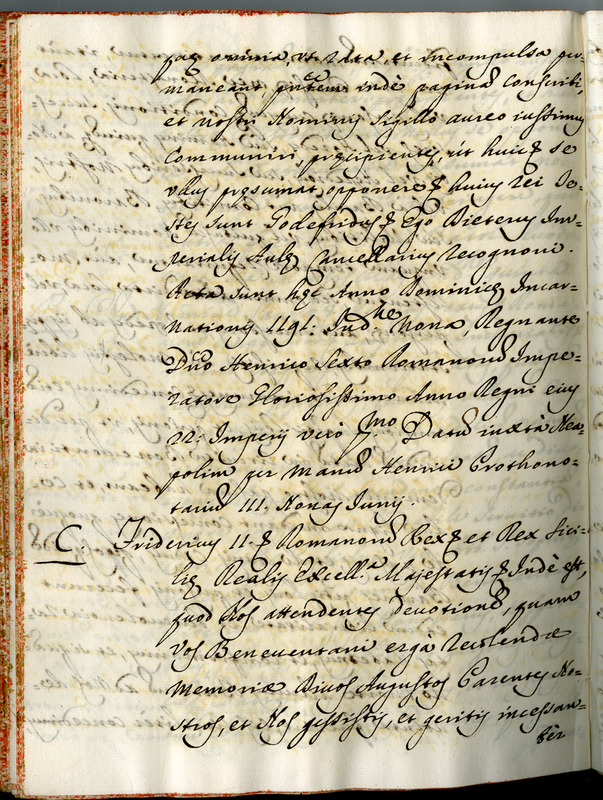 quę omnia, ut rata, et incompulsa per-
maneant, pñtem indè paginã conscribi,
et nostri Nominis sigillo aureo iussimus
Communiri, pręcipientes, ut huic & se
ullus pręsumat opponere & huius rei te-
stes sunt Godefridus & Ego Dieterus Im-
perialis Aulę Cancellarius recognoui.
Acta sunt hęc Anno Dominicę Incar-
nationis 1191: Ind.ne Nona, Regnante
Dño Henrico Sexto Romanorũ Impe-
ratore Gloriosissimo Anno Regni eius
22: Imperij verò pmo. Datũ iuxtà Nea-
polim per manus Henrici Prothono-
tarij III. Nonas Junij.
C. Fridericus II. & Romanorũ Rex & et Rex Sici-
lię Realis Excell.a Majestatis & Indè est,
quod Nos attendentes devotionẽ, quam
vos Beneventani ergà recolendæ
memoriæ Divos Augustos Parentes No-
stros, et Nos gessistis, et geritis incessan-
ter